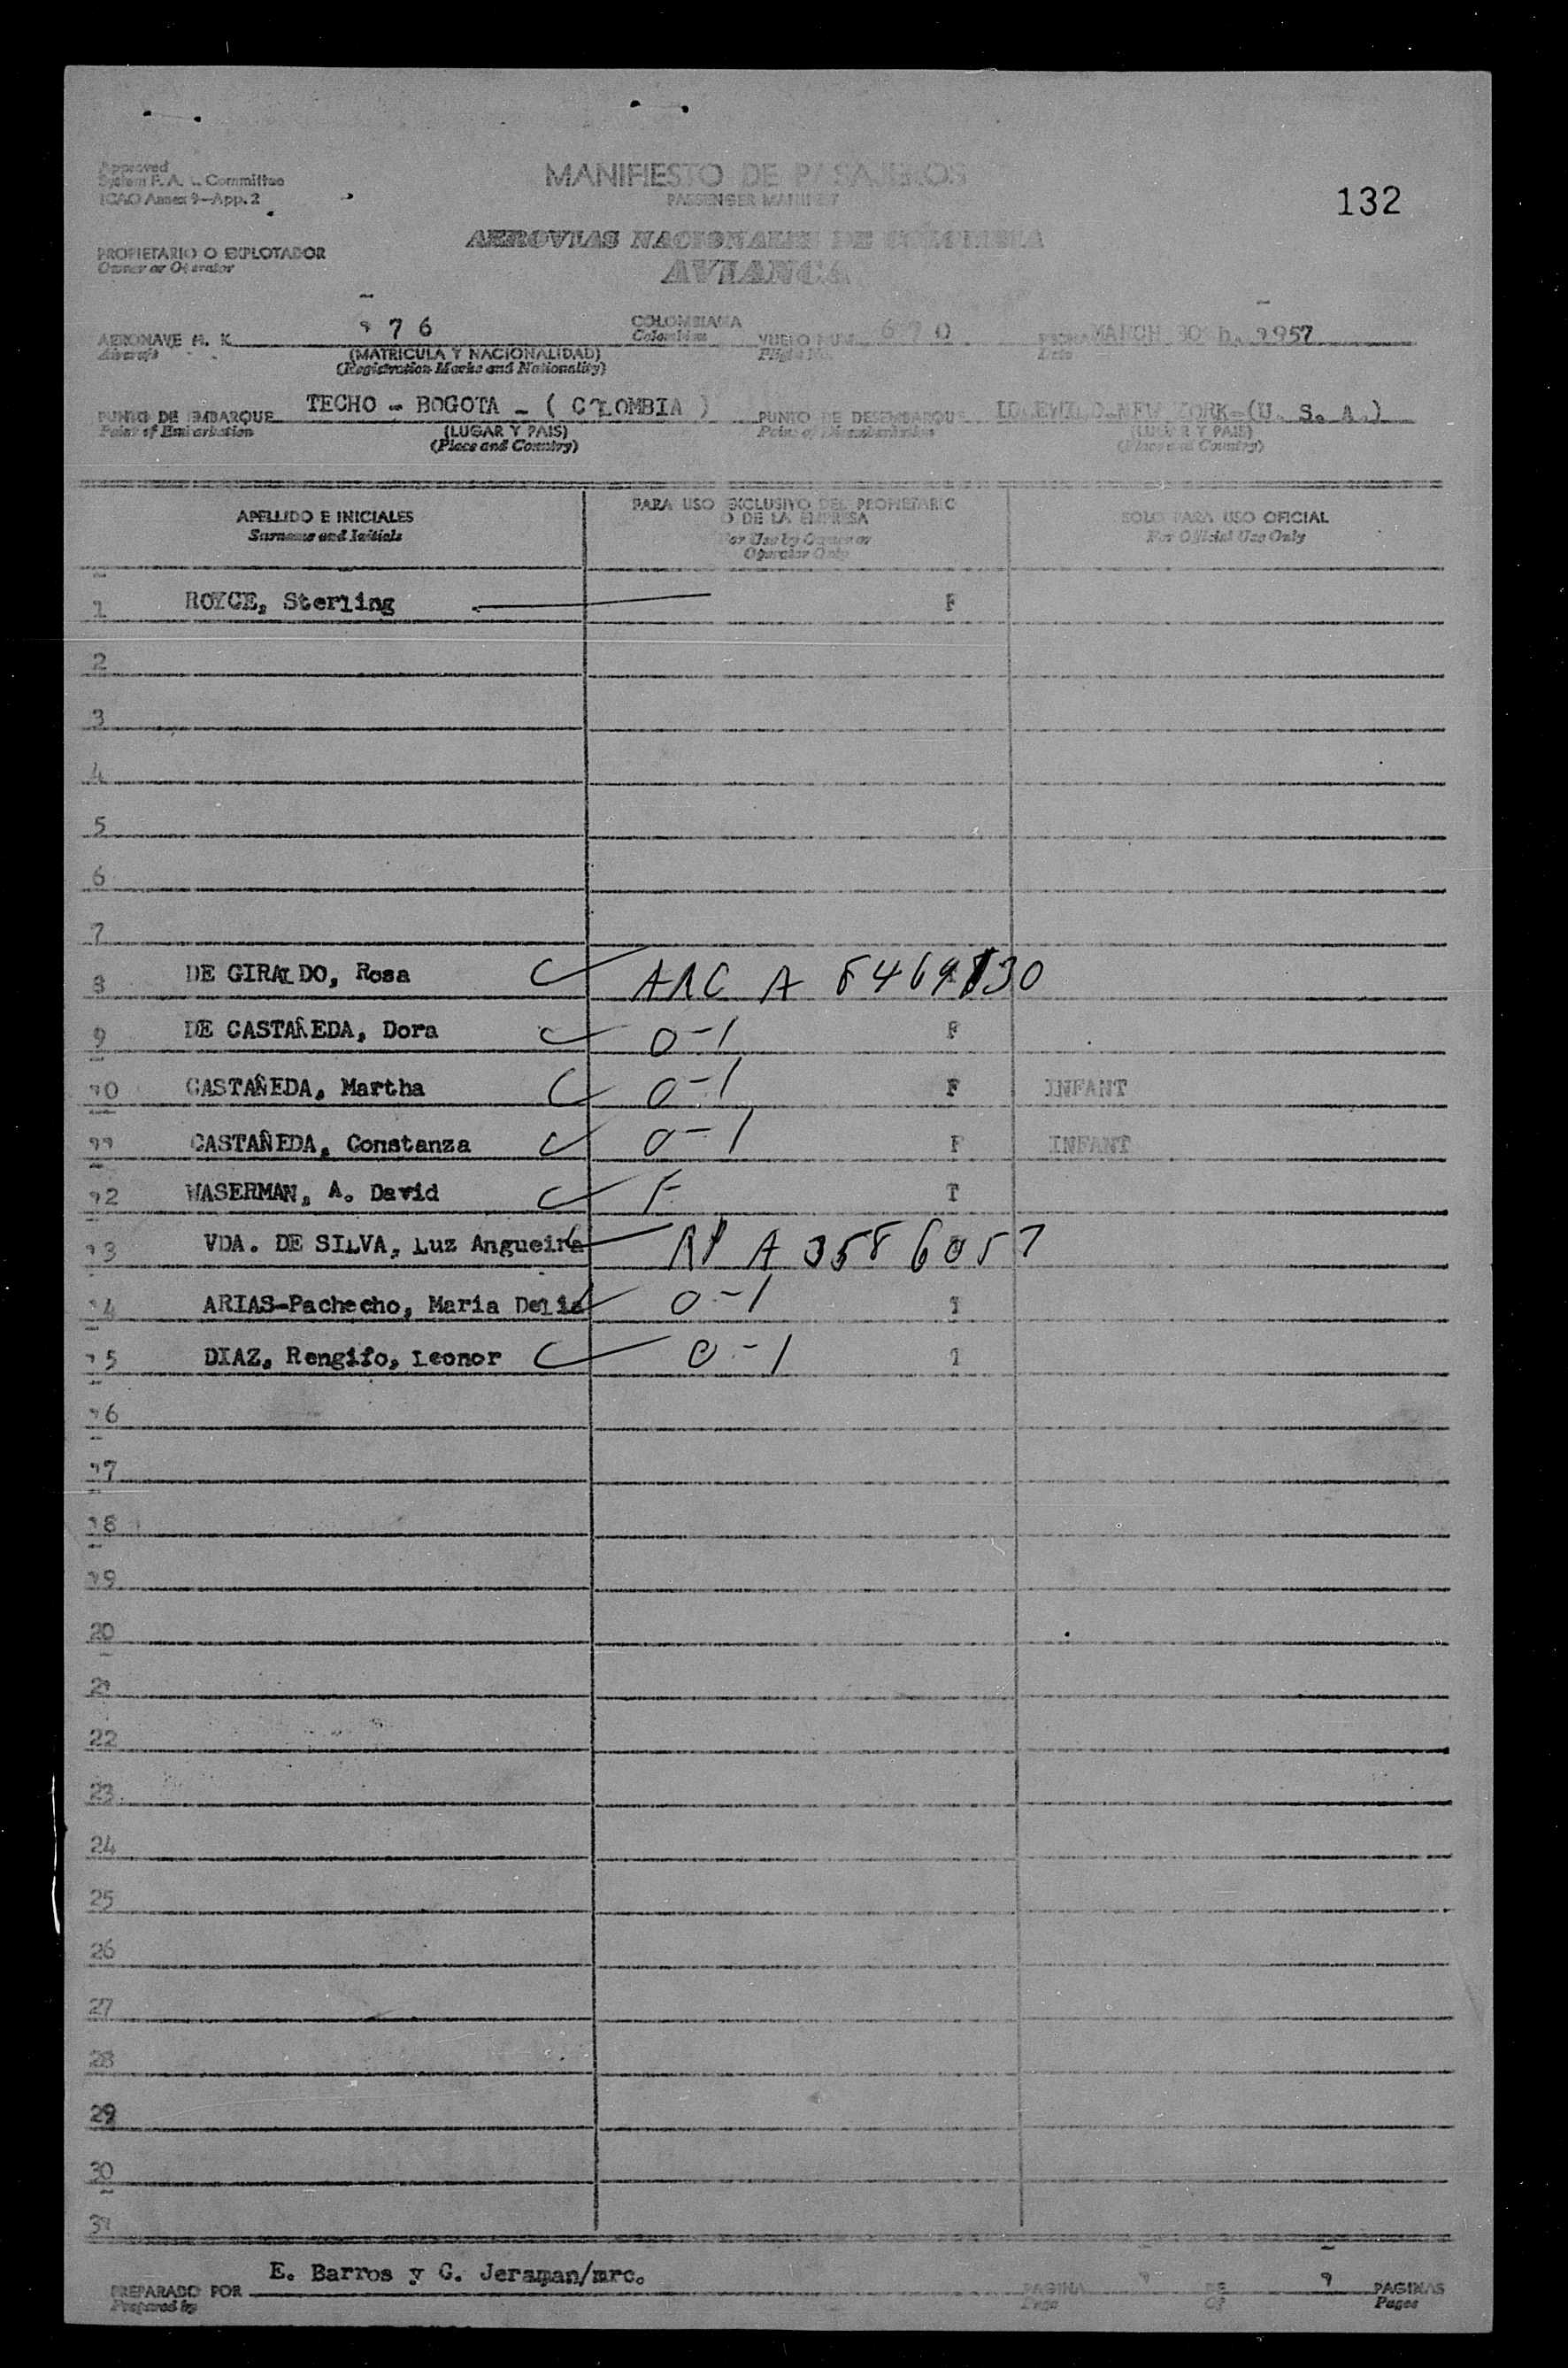 Approved
System F. A. L. Committee
ICAO Annex 9-App. 2
MANIFIESTO DE PASAJEROS
PASSENGER MANIFEST
132
PROPIETARIO O EXPLOTADOR
Owner or Operator
AEROVIAS NACIONALES DE COLOMBIA
AVIANCA
AERONAVE H. K. 176 COLOMBIANA VUELO NUM. 670 FECHA MARCH 30th, 1957
Aircraft Colombian Flight No. Date
(MATRICULA Y NACIONALIDAD)
(Registration Marks and Nationality)
PUNTO DE EMBARQUE TECHO - BOGOTA - ( COLOMBIA ) PUNTO DE DESEMBARQUE IDLEWILD-NEW YORK-(U. S. A.)
Point of Embarkation (LUGAR Y PAIS) Point of Disembarkation (LUGAR Y PAIS)
(Place and Country) (Place and Country)
APELLIDO E INICIALES
Surname and Initials
PARA USO EXCLUSIVO DEL PROPIETARIO
O DE LA EMPRESA
For Use by Owner or
Operator Only
SOLO PARA USO OFICIAL
For Official Use Only
1 ROYCE, Sterling F
2
3
4
5
6
7
8 DE GIRALDO, Rosa ARC A 8469830
9 DE CASTAÑEDA, Dora 0-1 F
10 CASTAÑEDA, Martha 0-1 F INFANT
11 CASTAÑEDA, Constanza 0-1 F INFANT
12 WASERMAN, A. David F T
13 VDA. DE SILVA, Luz Angueira RP A 3586057
14 ARIAS-Pachecho, Maria Delia 0-1 T
15 DIAZ, Rengifo, Leonor 0-1 T
16
17
18
19
20
21
22
23
24
25
26
27
28
29
30
31
PREPARADO POR E. Barros y G. Jeraman/mrc. PAGINA 1 DE 1 PAGINAS
Prepared by Page Of Pages